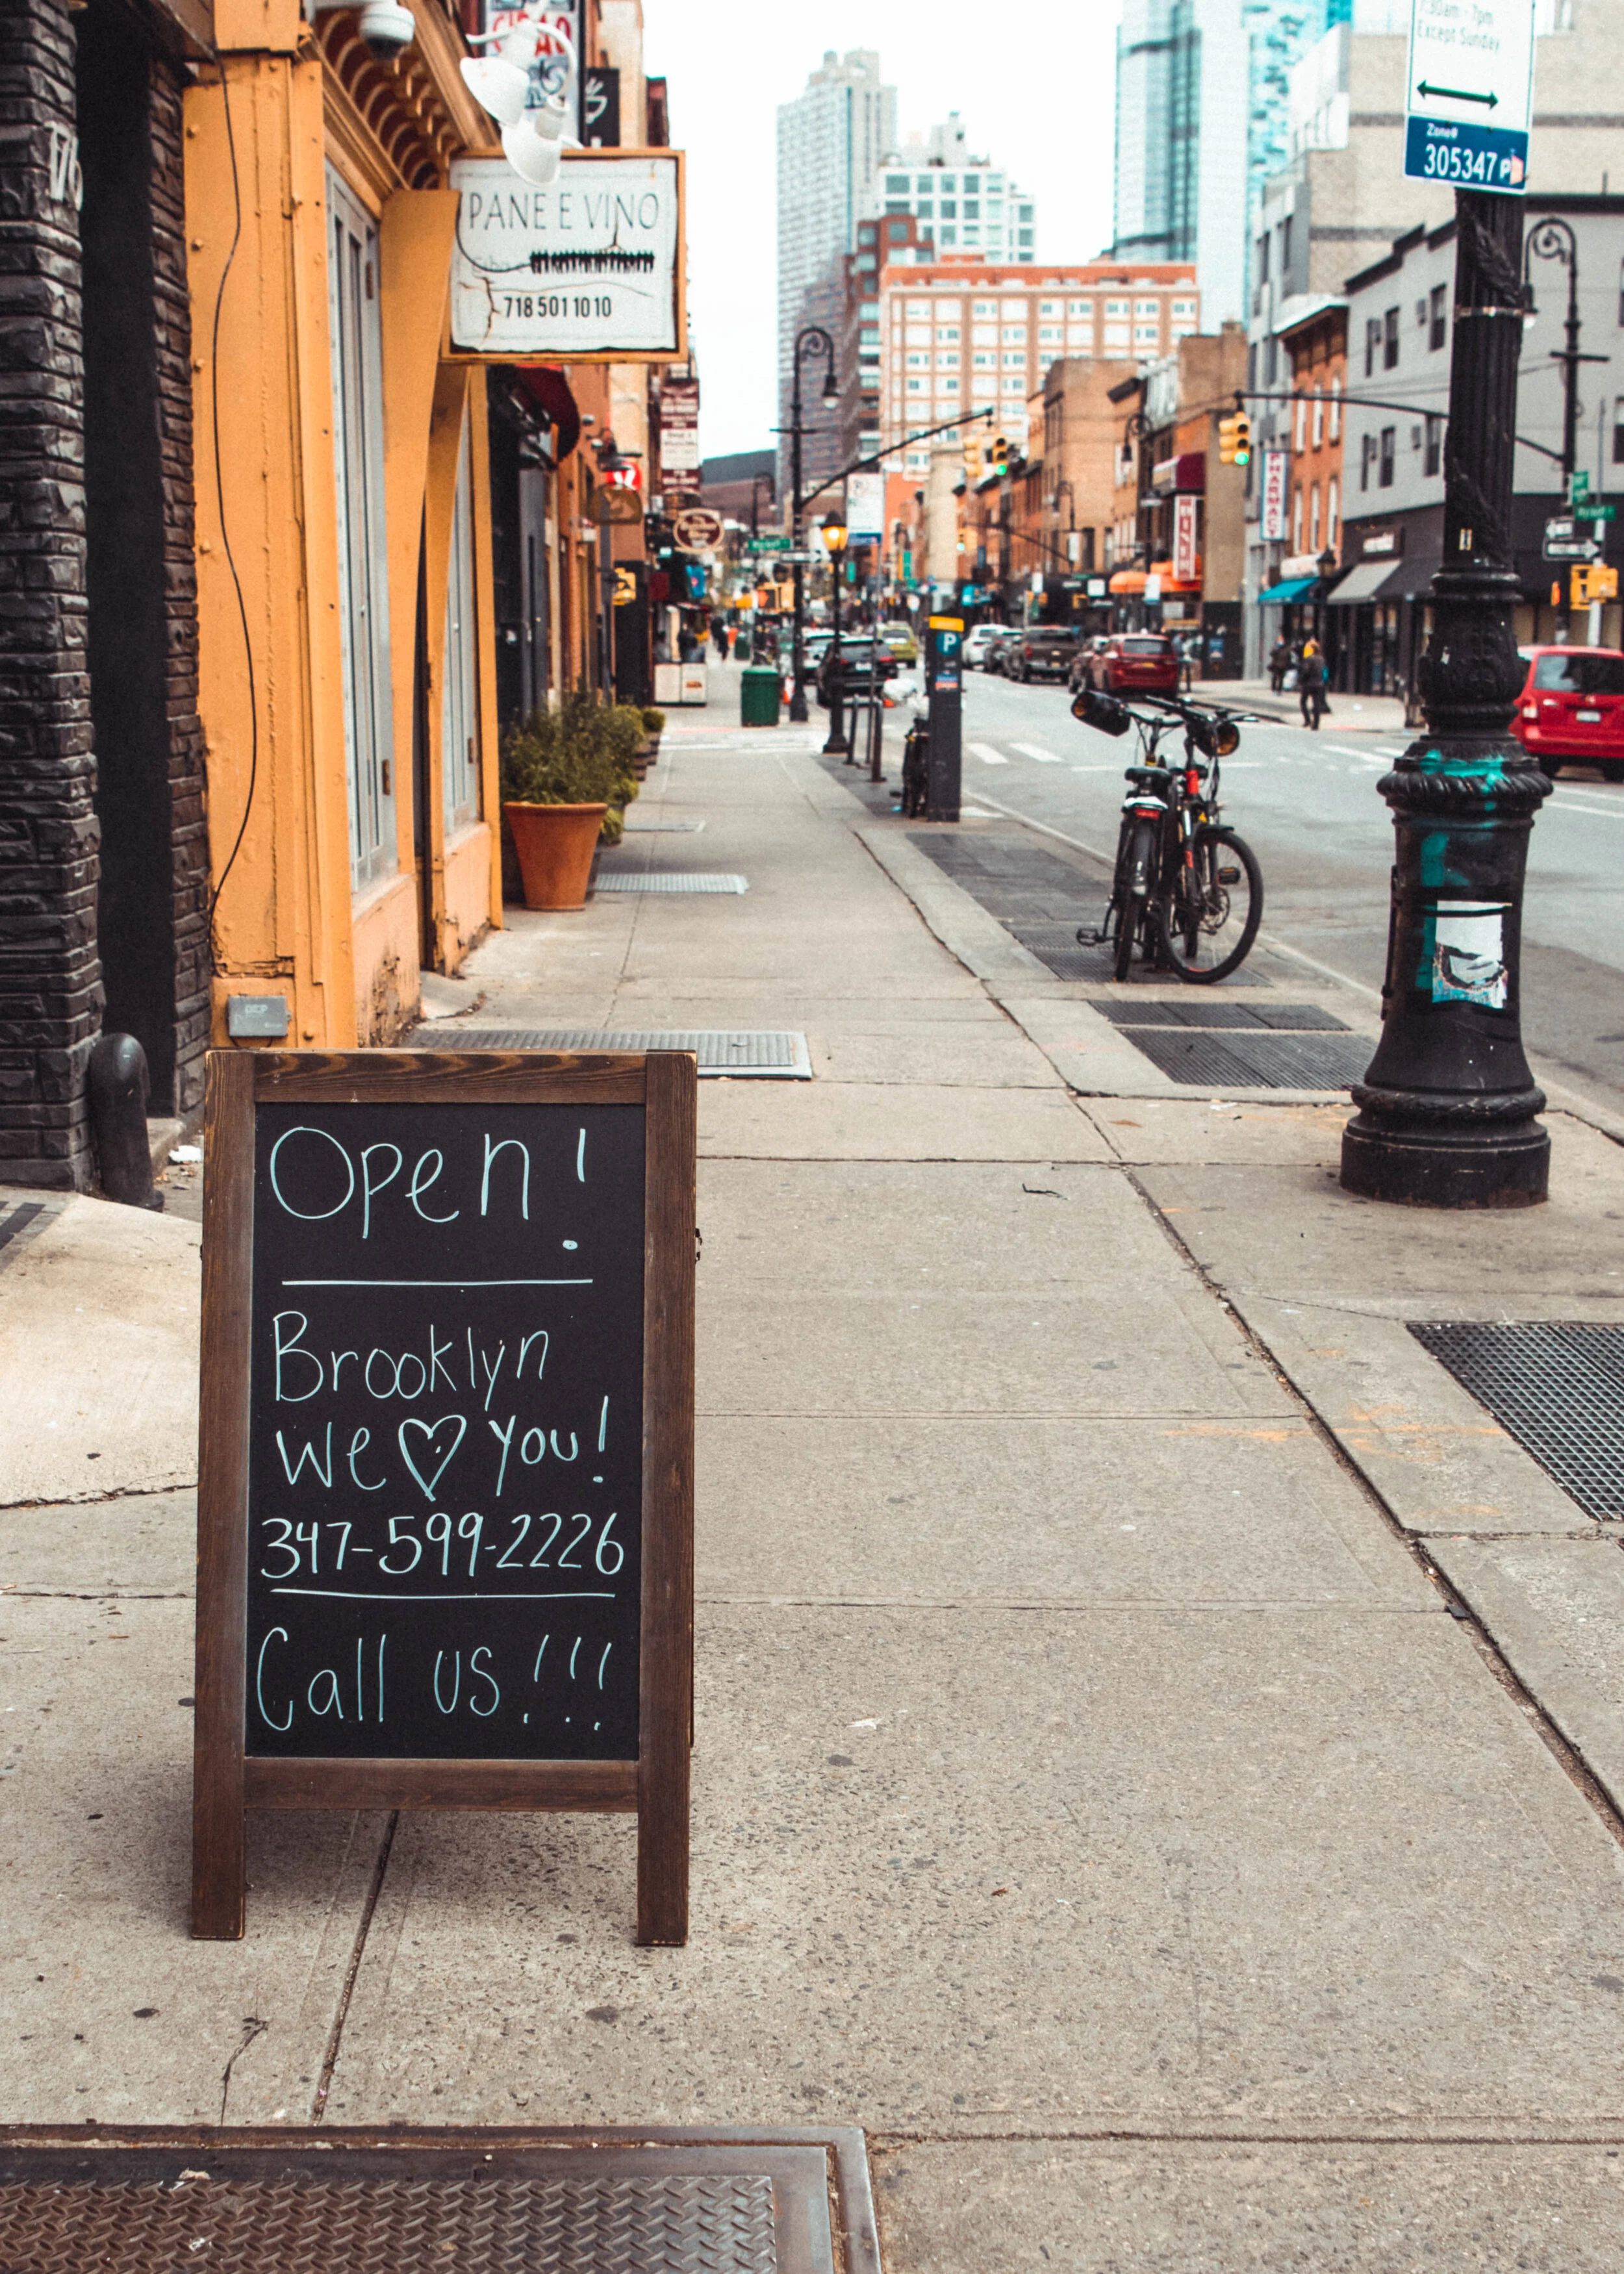 7:30am - 7pm
Except Sunday
Zone#
305347
PANE E VINO
718 501 10 10
P
PHARMACY
176
Open!
Brooklyn
We ♡ you!
347-599-2226
Call us!!!